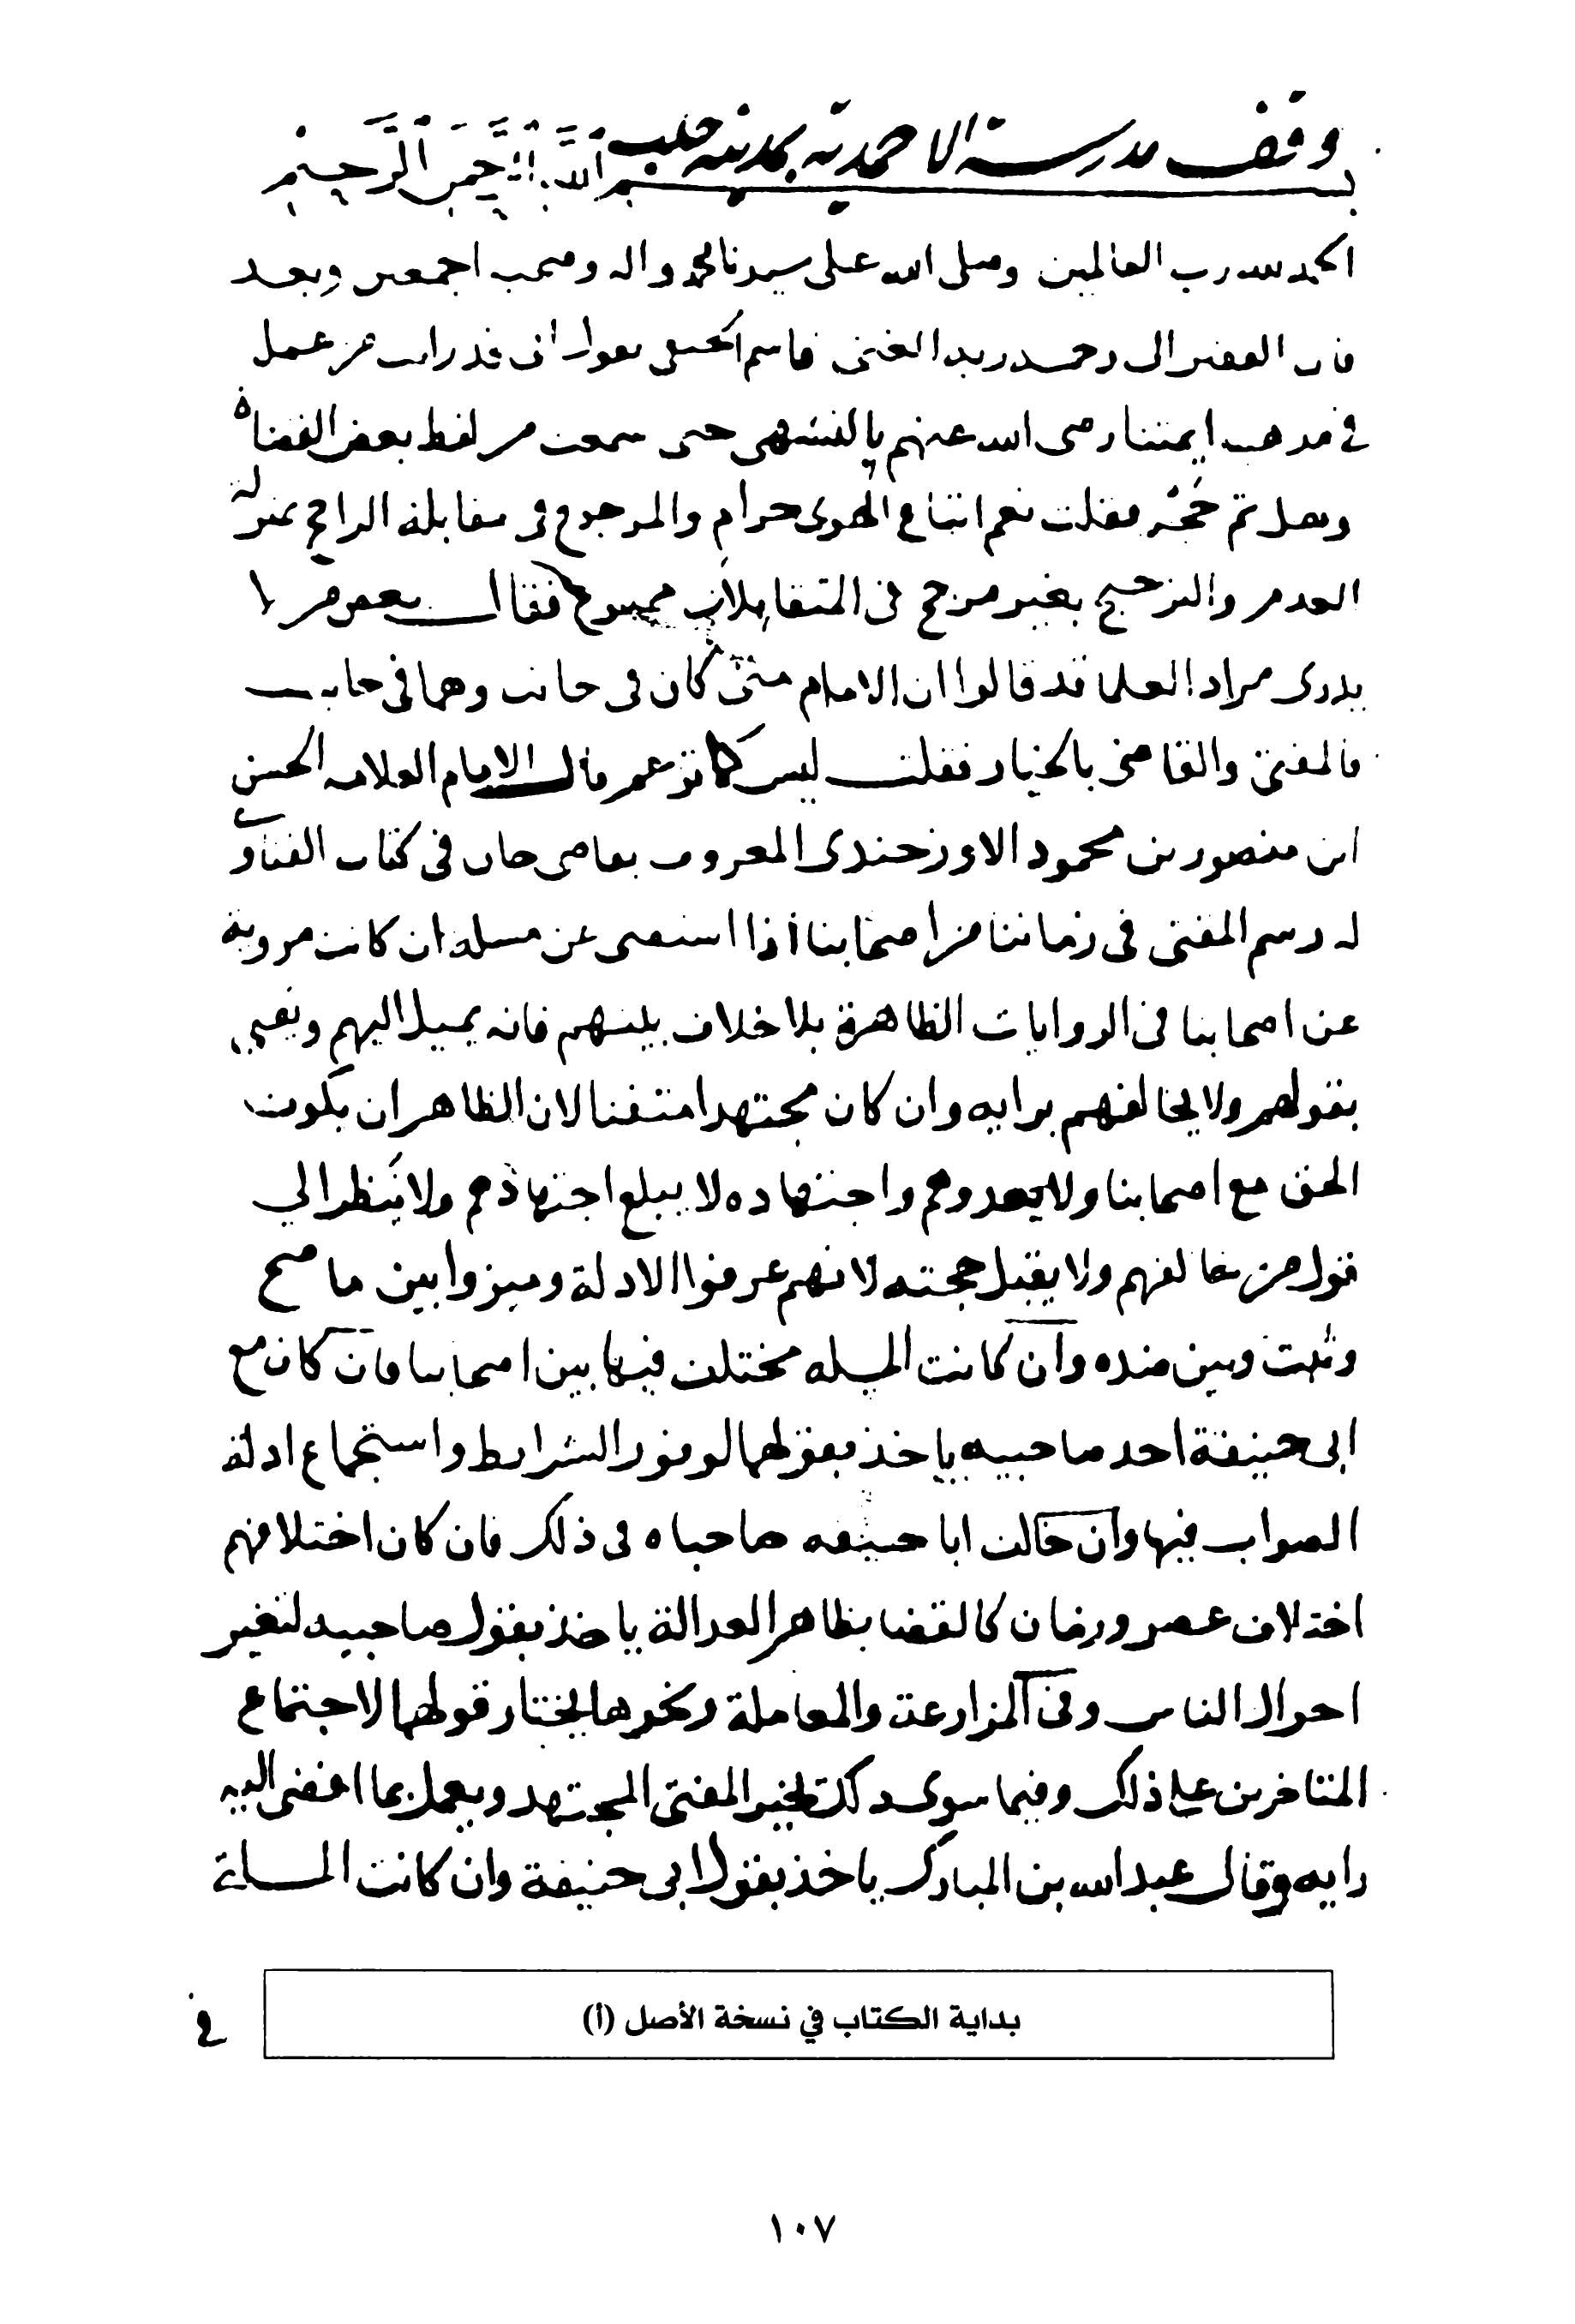 وقف مدرسة الاحمدية بمدينة حلب
بسم الله الرحمن الرحيم
الحمد لله رب العالمين وصلى الله على سيدنا محمد واله وصحبه اجمعين وبعد
فان الفقير الى رحمة ربه الغنى قاسم الحنفى يقول انى قد رايت من عمل
في مذهب ايمتنا رضى الله عنهم بالتشهى حتى سمعت من لفظ بعض القضاة
وهل ثم حجر فقلت نعم اتباع الهوى حرام والمرجوح فى مقابلة الراجح بمنزلة
العدم والترجيح بغير مرجح فى المتقابلات ممنوع فقال بعض من لا
يدرى مراد العلما قد قالوا ان الامام متى كان فى جانب وهما فى جانب
فالمفتى والقاضى بالخيار فقلت ليس كما تزعم قال الامام العلامه الحسن
ابن منصور بن محمود الاوزجندى المعروف بقاضى خان فى كتاب الفتاوى
له رسم المفتى فى زماننا من اصحابنا اذا استفتى عن مسله ان كانت مروية
عن اصحابنا فى الروايات الظاهرة بلا خلاف بينهم فانه يميل اليهم ويفتي
بقولهم ولا يخالفهم برايه وان كان مجتهدا متقنا لان الظاهر ان يكون
الحق مع اصحابنا ولا يعدوهم واجتهاده لا يبلغ اجتهادهم ولا ينظر الي
قول من خالفهم ولا يقبل حجته لانهم عرفوا الادلة وميزوا بين ما صح
وثبت وبين ضده وان كانت المسله مختلف فيها بين اصحابنا فان كان مع
ابى حنيفة احد صاحبيه ياخذ بقولهما لوفور الشرايط واستجماع ادلة
الصواب فيها وان خالف ابا حنيفه صاحباه فى ذلك فان كان اختلافهم
اختلاف عصر وزمان كالقضا بظاهر العدالة ياخذ بقول صاحبيه لتغير
احوال الناس وفى المزارعة والمعاملة ونحوها يختار قولهما لاجتماع
المتاخرين على ذلك وفيما سوى ذلك يخير المفتى المجتهد ويعمل بما افضى اليه
رايه وقال عبد الله بن المبارك ياخذ بقول ابى حنيفة وان كانت المسلة
في
بداية الكتاب في نسخة الأصل (أ)
١٠٧